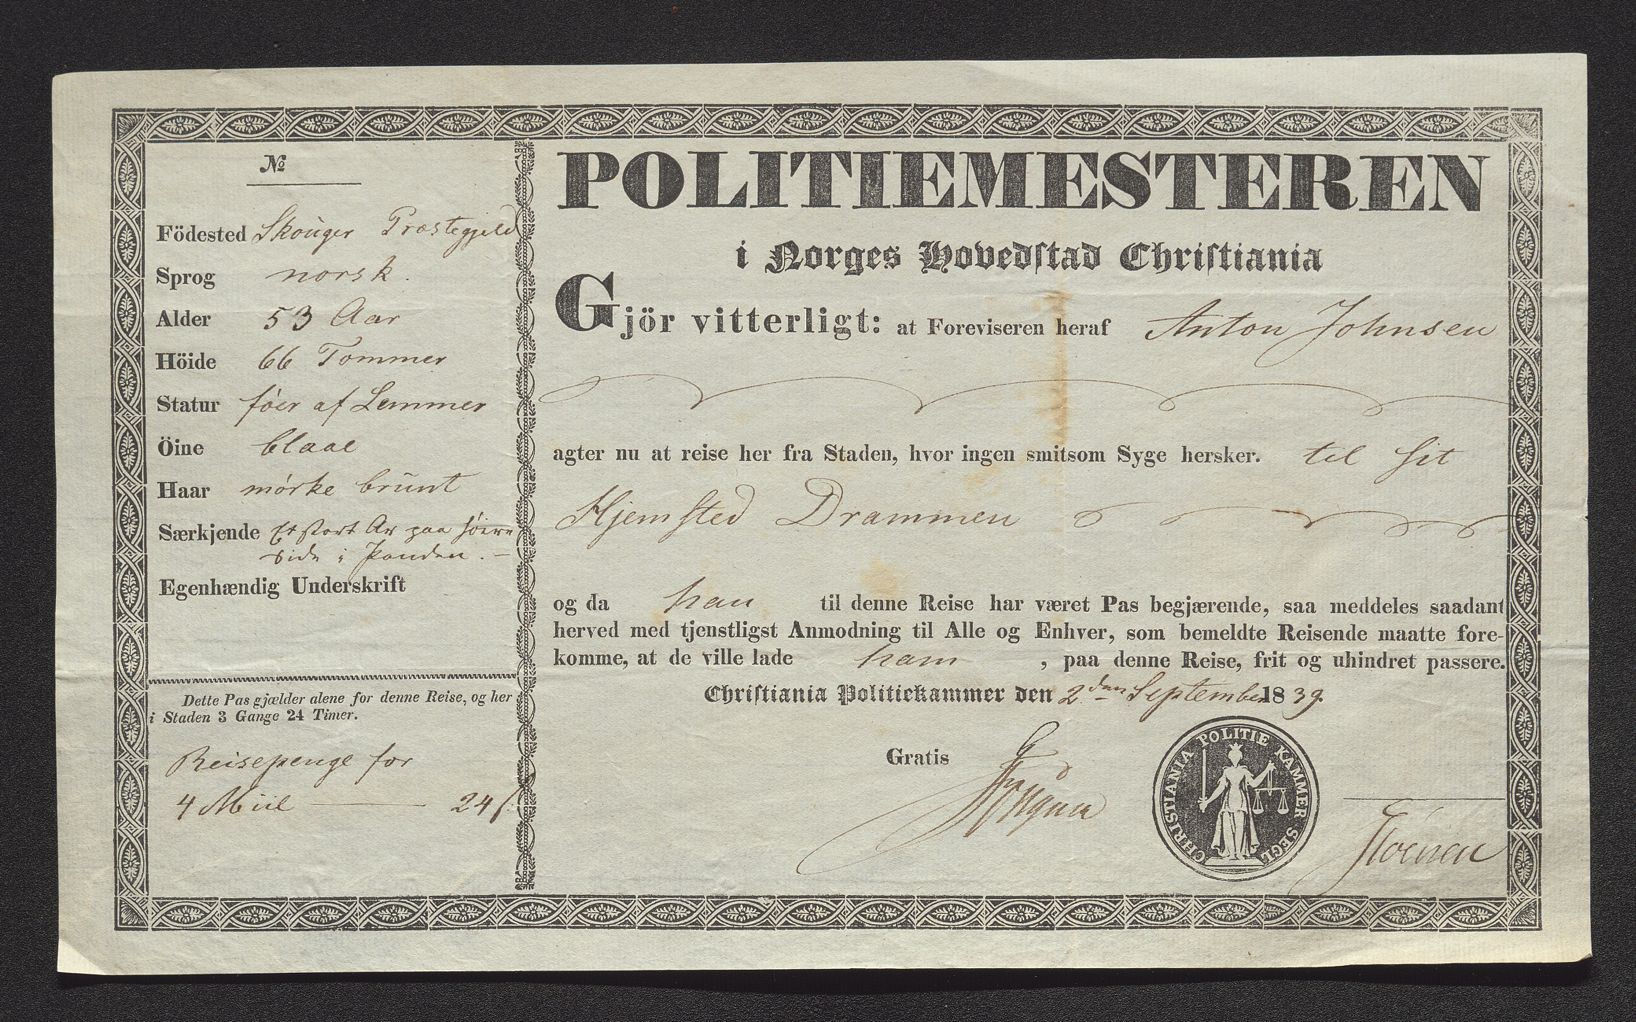 №
Födested Skouger Præstegjeld
Sprog norsk.
Alder 53 Aar
Höide 66 Tommer
Statur føer af Lemmer
Öine blaae
Haar mørke brunt
Særkjende Et stort Ar paa høire
side i Panden. —
Egenhændig Underskrift
Dette Pas gjælder alene for denne Reise, og her
i Staden 3 Gange 24 Timer.
Reisepenge for
4 Miil — 24
POLITIEMESTEREN
i Norges Hovedstad Christiania
Gjör vitterligt: at Foreviseren heraf Anton Johnsen
agter nu at reise her fra Staden, hvor ingen smitsom Syge hersker. til sit
Hjemsted Drammen
og da han til denne Reise har været Pas begjærende, saa meddeles saadant
herved med tjenstligst Anmodning til Alle og Enhver, som bemeldte Reisende maatte fore-
komme, at de ville lade ham, paa denne Reise, frit og uhindret passere.
Christiania Politiekammer den 2den September 1839.
Gratis
CHRISTIANIA POLITIE KAMMER SEGL